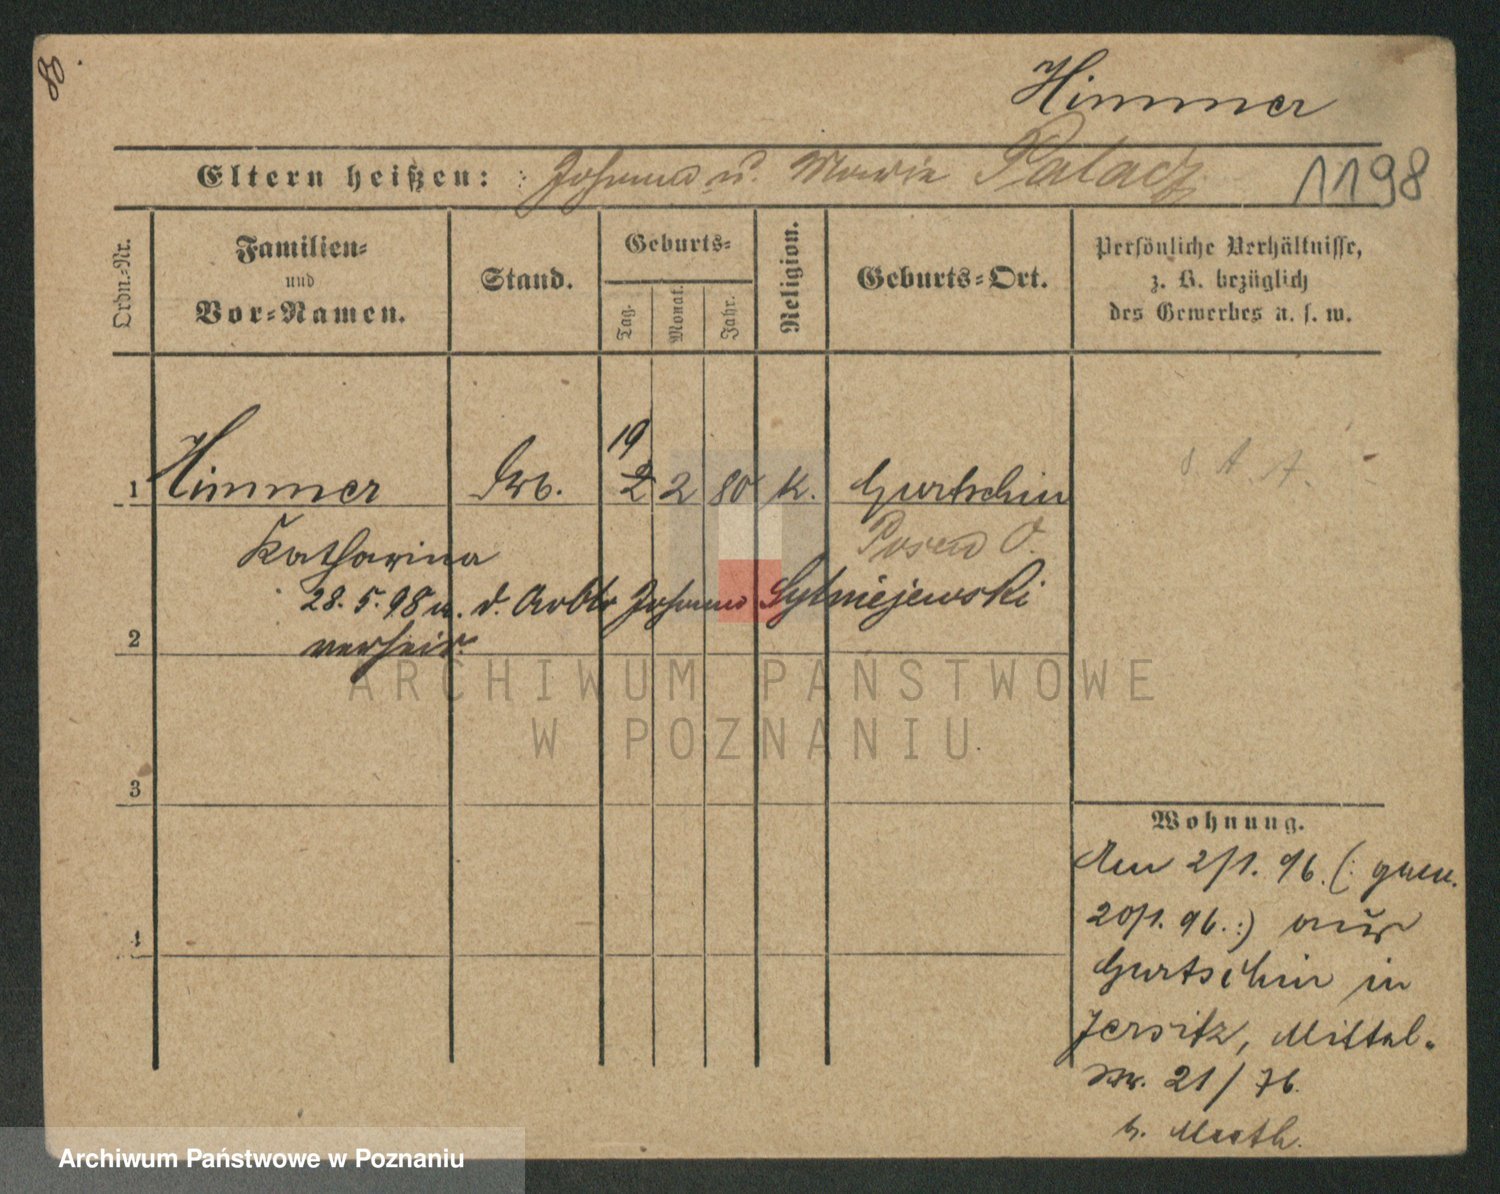 80.
Himmer
Eltern heißen: Johann u. Marie Palacz
1198
Ordn.-Nr.
Familien-
und
Vor-Namen.
Stand.
Geburts-
Tag.
Monat.
Jahr.
Religion.
Geburts-Ort.
Persönliche Verhältnisse,
z. B. bezüglich
des Gewerbes u. s. w.
19
1 Himmer Arb. 2 2 80 K. Gurtschin
Katharina Posen O.
28. 5. 98 m. d. Arbtr Johann Sytniejewski
2 verheir.
3
4
Wohnung.
Am 2/1. 96. (: gem.
20/1. 96. :) aus
Gurtschin in
Jersitz, Mittel-
str. 21 / 76.
b.
ARCHIWUM PAŃSTWOWE
W POZNANIU
Archiwum Państwowe w Poznaniu